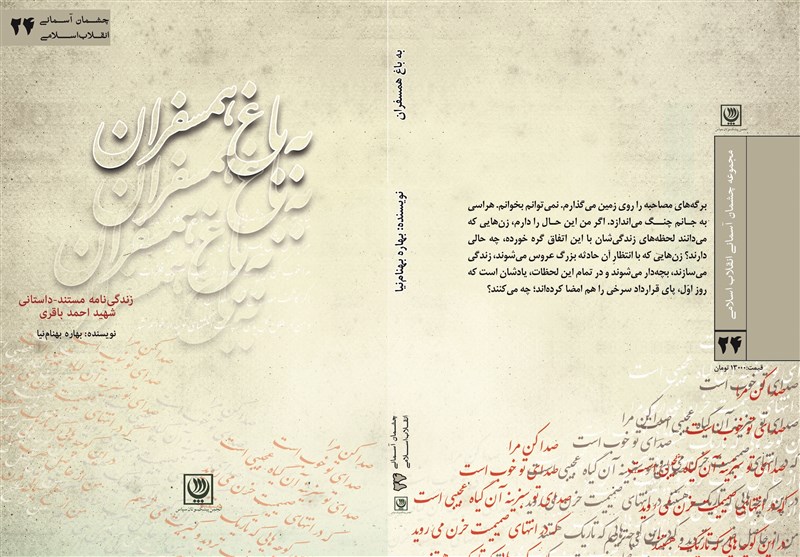 چشمان آسمانی
انقلاب اسلامی
۲۴
به باغ همسفران
زندگی‌نامه مستند-داستانی
شهید احمد باقری
نویسنده: بهاره بهنام‌نیا
صدا کن مرا
صدای تو خوب است
صدای تو سبزینه آن گیاه عجیبی است
که در انتهای صمیمیت حزن می روید
به باغ همسفران
نویسنده: بهاره بهنام‌نیا
چشمان آسمانی
انقلاب اسلامی
۲۴
مجموعه چشمان آسمانی انقلاب اسلامی
۲۴
قیمت: ۱۳۰۰۰ تومان
برگه‌های مصاحبه را روی زمین می‌گذارم. نمی‌توانم بخوانم. هراسی
به جانم چنگ می‌اندازد. اگر من این حال را دارم، زن‌هایی که
می‌دانند لحظه‌های زندگی‌شان با این اتفاق گره خورده، چه حالی
دارند؟ زن‌هایی که با انتظار آن حادثه بزرگ عروس می‌شوند، زندگی
می‌سازند، بچه‌دار می‌شوند و در تمام این لحظات، یادشان است که
روز اوّل، پای قرارداد سرخی را هم امضا کرده‌اند؛ چه می‌کنند؟
صدا کن مرا
صدای تو خوب است
صدای تو سبزینه آن گیاه عجیبی است
که در انتهای صمیمیت حزن می روید